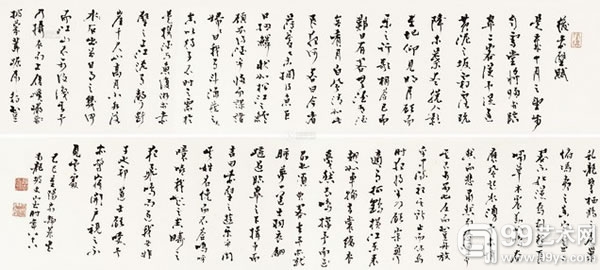 後赤壁賦
是歲十月之望步
自雪堂將歸於臨
皋二客從予過
黃泥之坂霜露既
降木葉盡脫人影
在地仰見明月顧而
樂之行歌相答已而
歎曰有客無酒有酒
無肴月白風清如此
良夜何客曰今者
薄暮舉網得魚巨
口細鱗狀似松江之鱸
顧安所得酒乎歸而謀諸
婦婦曰我有斗酒藏之久
矣以待子不時之需於
是攜酒與魚復遊於赤
壁之下江流有聲斷
岸千尺山高月小水落
石出曾日月之幾何
而江山不可復識矣予
乃攝衣而上履巉巖
披蒙茸踞虎豹登
虬龍攀棲鶻之危巢
俯馮夷之幽宮蓋
二客不能從焉劃然
長嘯草木震動山
鳴谷應風起水涌予
亦悄然而悲肅然而
恐凜乎其不可留也反而登舟
放乎中流聽其所止而休焉
時夜將半四顧寂寥
適有孤鶴橫江東來
翅如車輪玄裳縞衣
戛然長鳴掠予舟而西
也須臾客去予亦就
睡夢一道士羽衣翩
躚過臨皋之下揖予而
言曰赤壁之遊樂乎問
其姓名俛而不答嗚呼
噫嘻我知之矣疇昔之
夜飛鳴而過我者非
子也耶道士顧笑予
亦驚寤開戶視之不
見其處
99艺术网
www.99ys.com